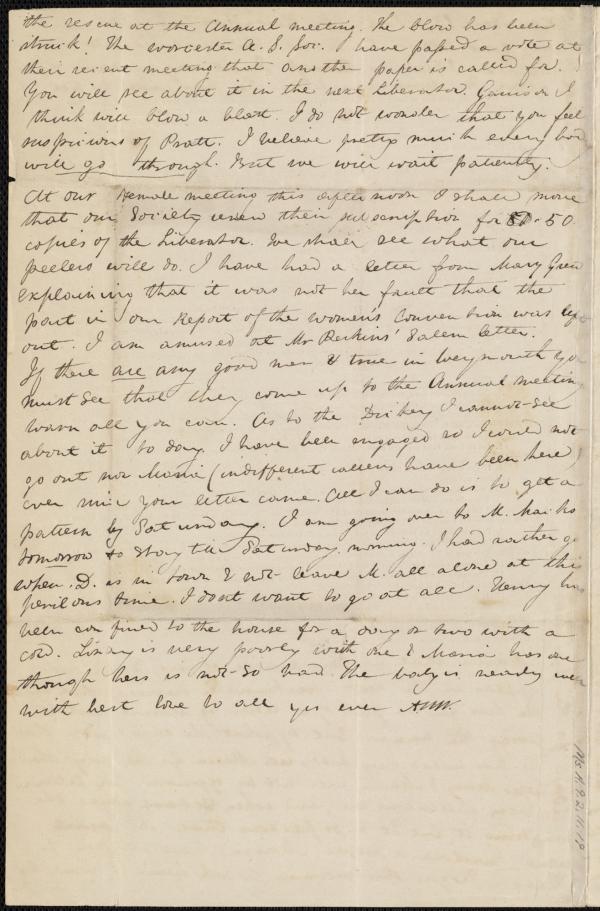 the rescue at the Annual meeting. The blow has been
struck! The Worcester A. S. Soc. have passed a vote at
their recent meeting that another paper is called for.
You will see about it in the next Liberator. Garrison I
think will blow a blast. I do not wonder that you feel
suspicious of Pratt. I believe pretty much every bod
will go through. But we will wait patiently.
At our Female meeting this afternoon I shall move
that our Society renew their subscription for 50
copies of the Liberator. We shall see what our
feelers will do. I have had a letter from Mary Grew
explaining that it was not her fault that the
part in our Report of the women's Convention was left
out. I am amused at Mr Perkins' Salem letter.
If there are any good men & true in Weymouth you
must see that they come up to the Annual meeting
warn all you can. As to the Dickey I cannot see
about it to day. I have been engaged so I could not
go out nor Maria (indifferent callers have been here)
ever since your letter came. All I can do is to get a
pattern by Saturday. I am going over to M.
tomorrow to stay till Saturday morning. I had rather go
when D. is in town & not leave M. all alone at this
perilous time. I dont want to go at all. Henry has
been confined to the house for a day or two with a
cold. Lizzy is very poorly with one & Maria has one
though hers is not so bad. The baby is nearly well
with best love to all yrs ever AWW.
Ms.A.9.2.11.19